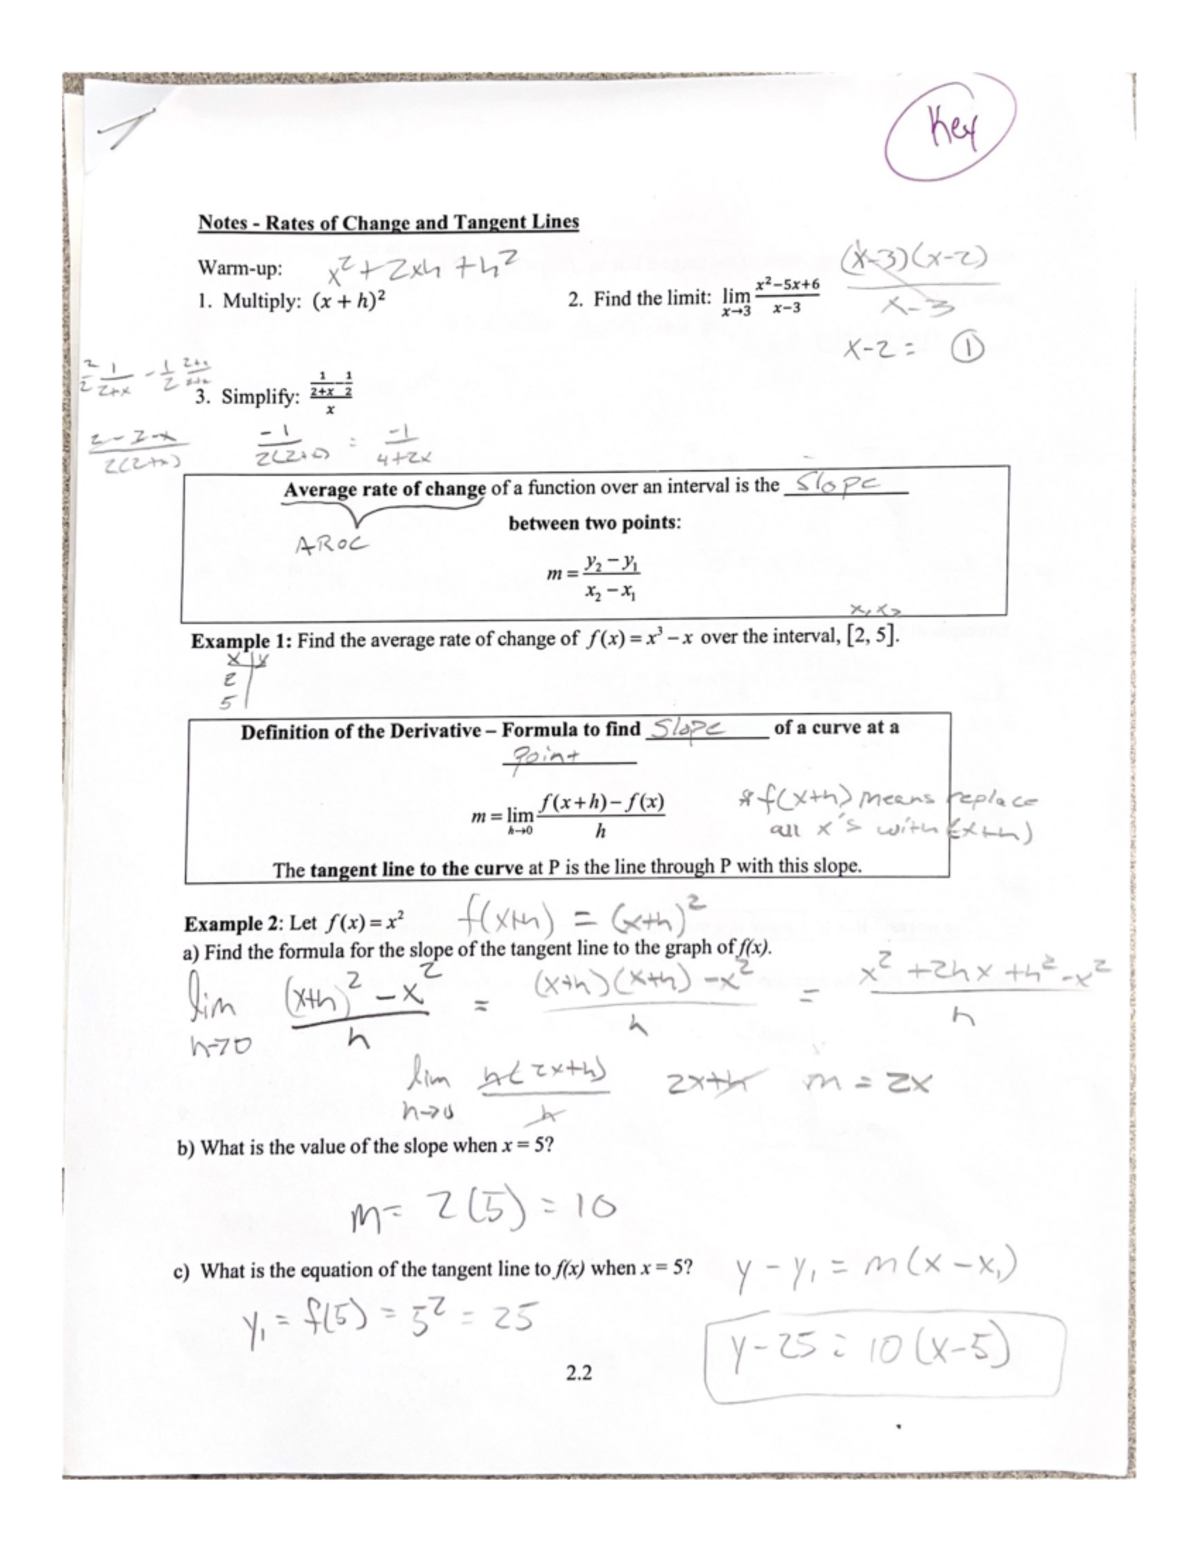 Key
Notes - Rates of Change and Tangent Lines
Warm-up: x² + 2xh + h²
1. Multiply: (x + h)²
2. Find the limit: lim x→3 (x²−5x+6)/(x−3)
(x-3)(x-2)
x-3
x-2 = 1
2/2 1/(2+x) - 1/2 (2+x)/(2+x)
3. Simplify: (1/(2+x) − 1/2)/x
(2-2-x)/(2(2+x)) -1/(2(2+x)) = -1/(4+2x)
Average rate of change of a function over an interval is the Slope
between two points:
AROC
m = (y₂ − y₁)/(x₂ − x₁)
x₁ x₂
Example 1: Find the average rate of change of f(x) = x³ − x over the interval, [2, 5].
x | y
2
5
Definition of the Derivative – Formula to find Slope of a curve at a
Point
m = lim h→0 (f(x+h) − f(x))/h
* f(x+h) means replace
all x's with (x+h)
The tangent line to the curve at P is the line through P with this slope.
Example 2: Let f(x) = x² f(x+h) = (x+h)²
a) Find the formula for the slope of the tangent line to the graph of f(x).
lim h→0 ((x+h)² - x²)/h = ((x+h)(x+h) - x²)/h = (x² + 2hx + h² - x²)/h
lim h→0 h(2x+h)/h 2x+h m = 2x
b) What is the value of the slope when x = 5?
m = 2(5) = 10
c) What is the equation of the tangent line to f(x) when x = 5? y - y₁ = m(x - x₁)
y₁ = f(5) = 5² = 25
y - 25 = 10(x-5)
2.2